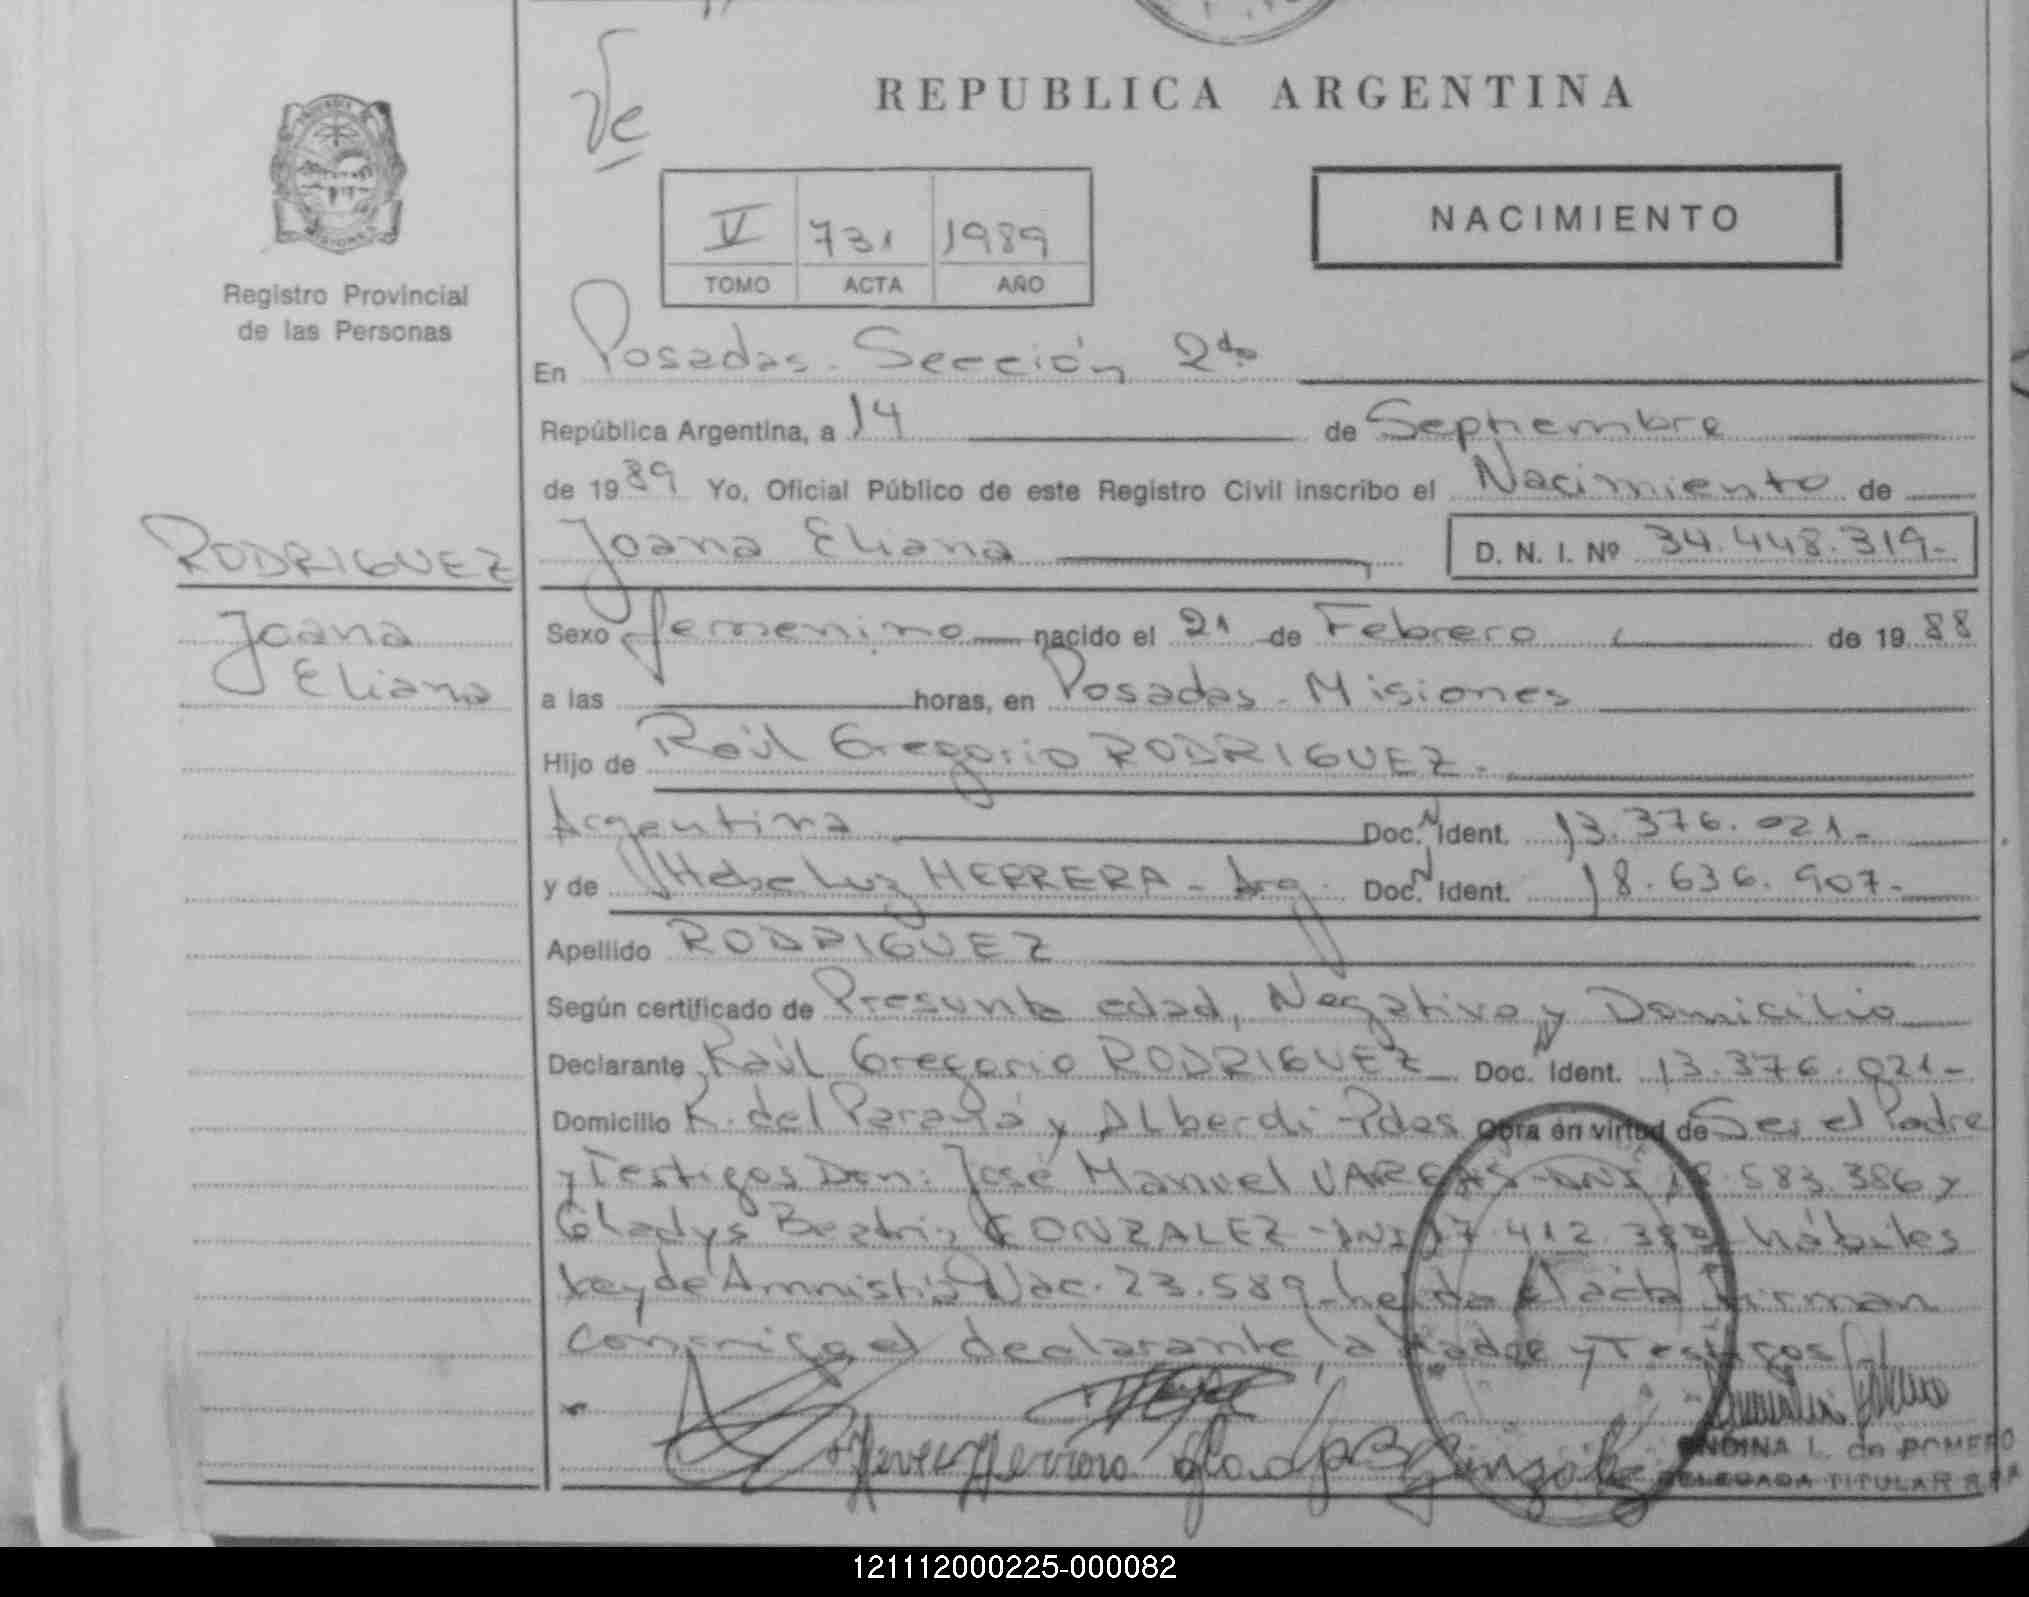 Ve
REPUBLICA ARGENTINA
NACIMIENTO
V 731 1989
TOMO ACTA AÑO
Registro Provincial
de las Personas
En Posadas - Sección 2da
República Argentina, a 14 de Septiembre
de 1989 Yo, Oficial Público de este Registro Civil inscribo el Nacimiento de
RODRIGUEZ
Joana Eliana D. N. I. Nº 34.448.319-
Joana
Eliana
Sexo femenino nacido el 21 de Febrero de 1988
a las horas, en Posadas - Misiones
Hijo de Raúl Gregorio RODRIGUEZ.
Argentina Doc. N Ident. 13.376.021-
y de Hebe Luz HERRERA - Arg. Doc. N Ident. 18.636.907-
Apellido RODRIGUEZ
Según certificado de Presunta edad, Negativo y Domicilio
Declarante Raúl Gregorio RODRIGUEZ Doc. N Ident. 13.376.021-
Domicilio K. del Paraná y Alberdi - Pdas Obra en virtud de Ser el Padre
y Testigos Don: José Manuel VARGAS - DNI 583.386 y
Gladys Beatriz GONZALEZ - DNI 17.412. hábiles
Ley de Amnistía Nac. 23.589 - leída el acta firman
conmigo el declarante, la Madre y Testigos
Hebe Herrera Gladys B Gonzalez
ONDINA L. de ROMERO
DELEGADA TITULAR R.P.P.
121112000225-000082